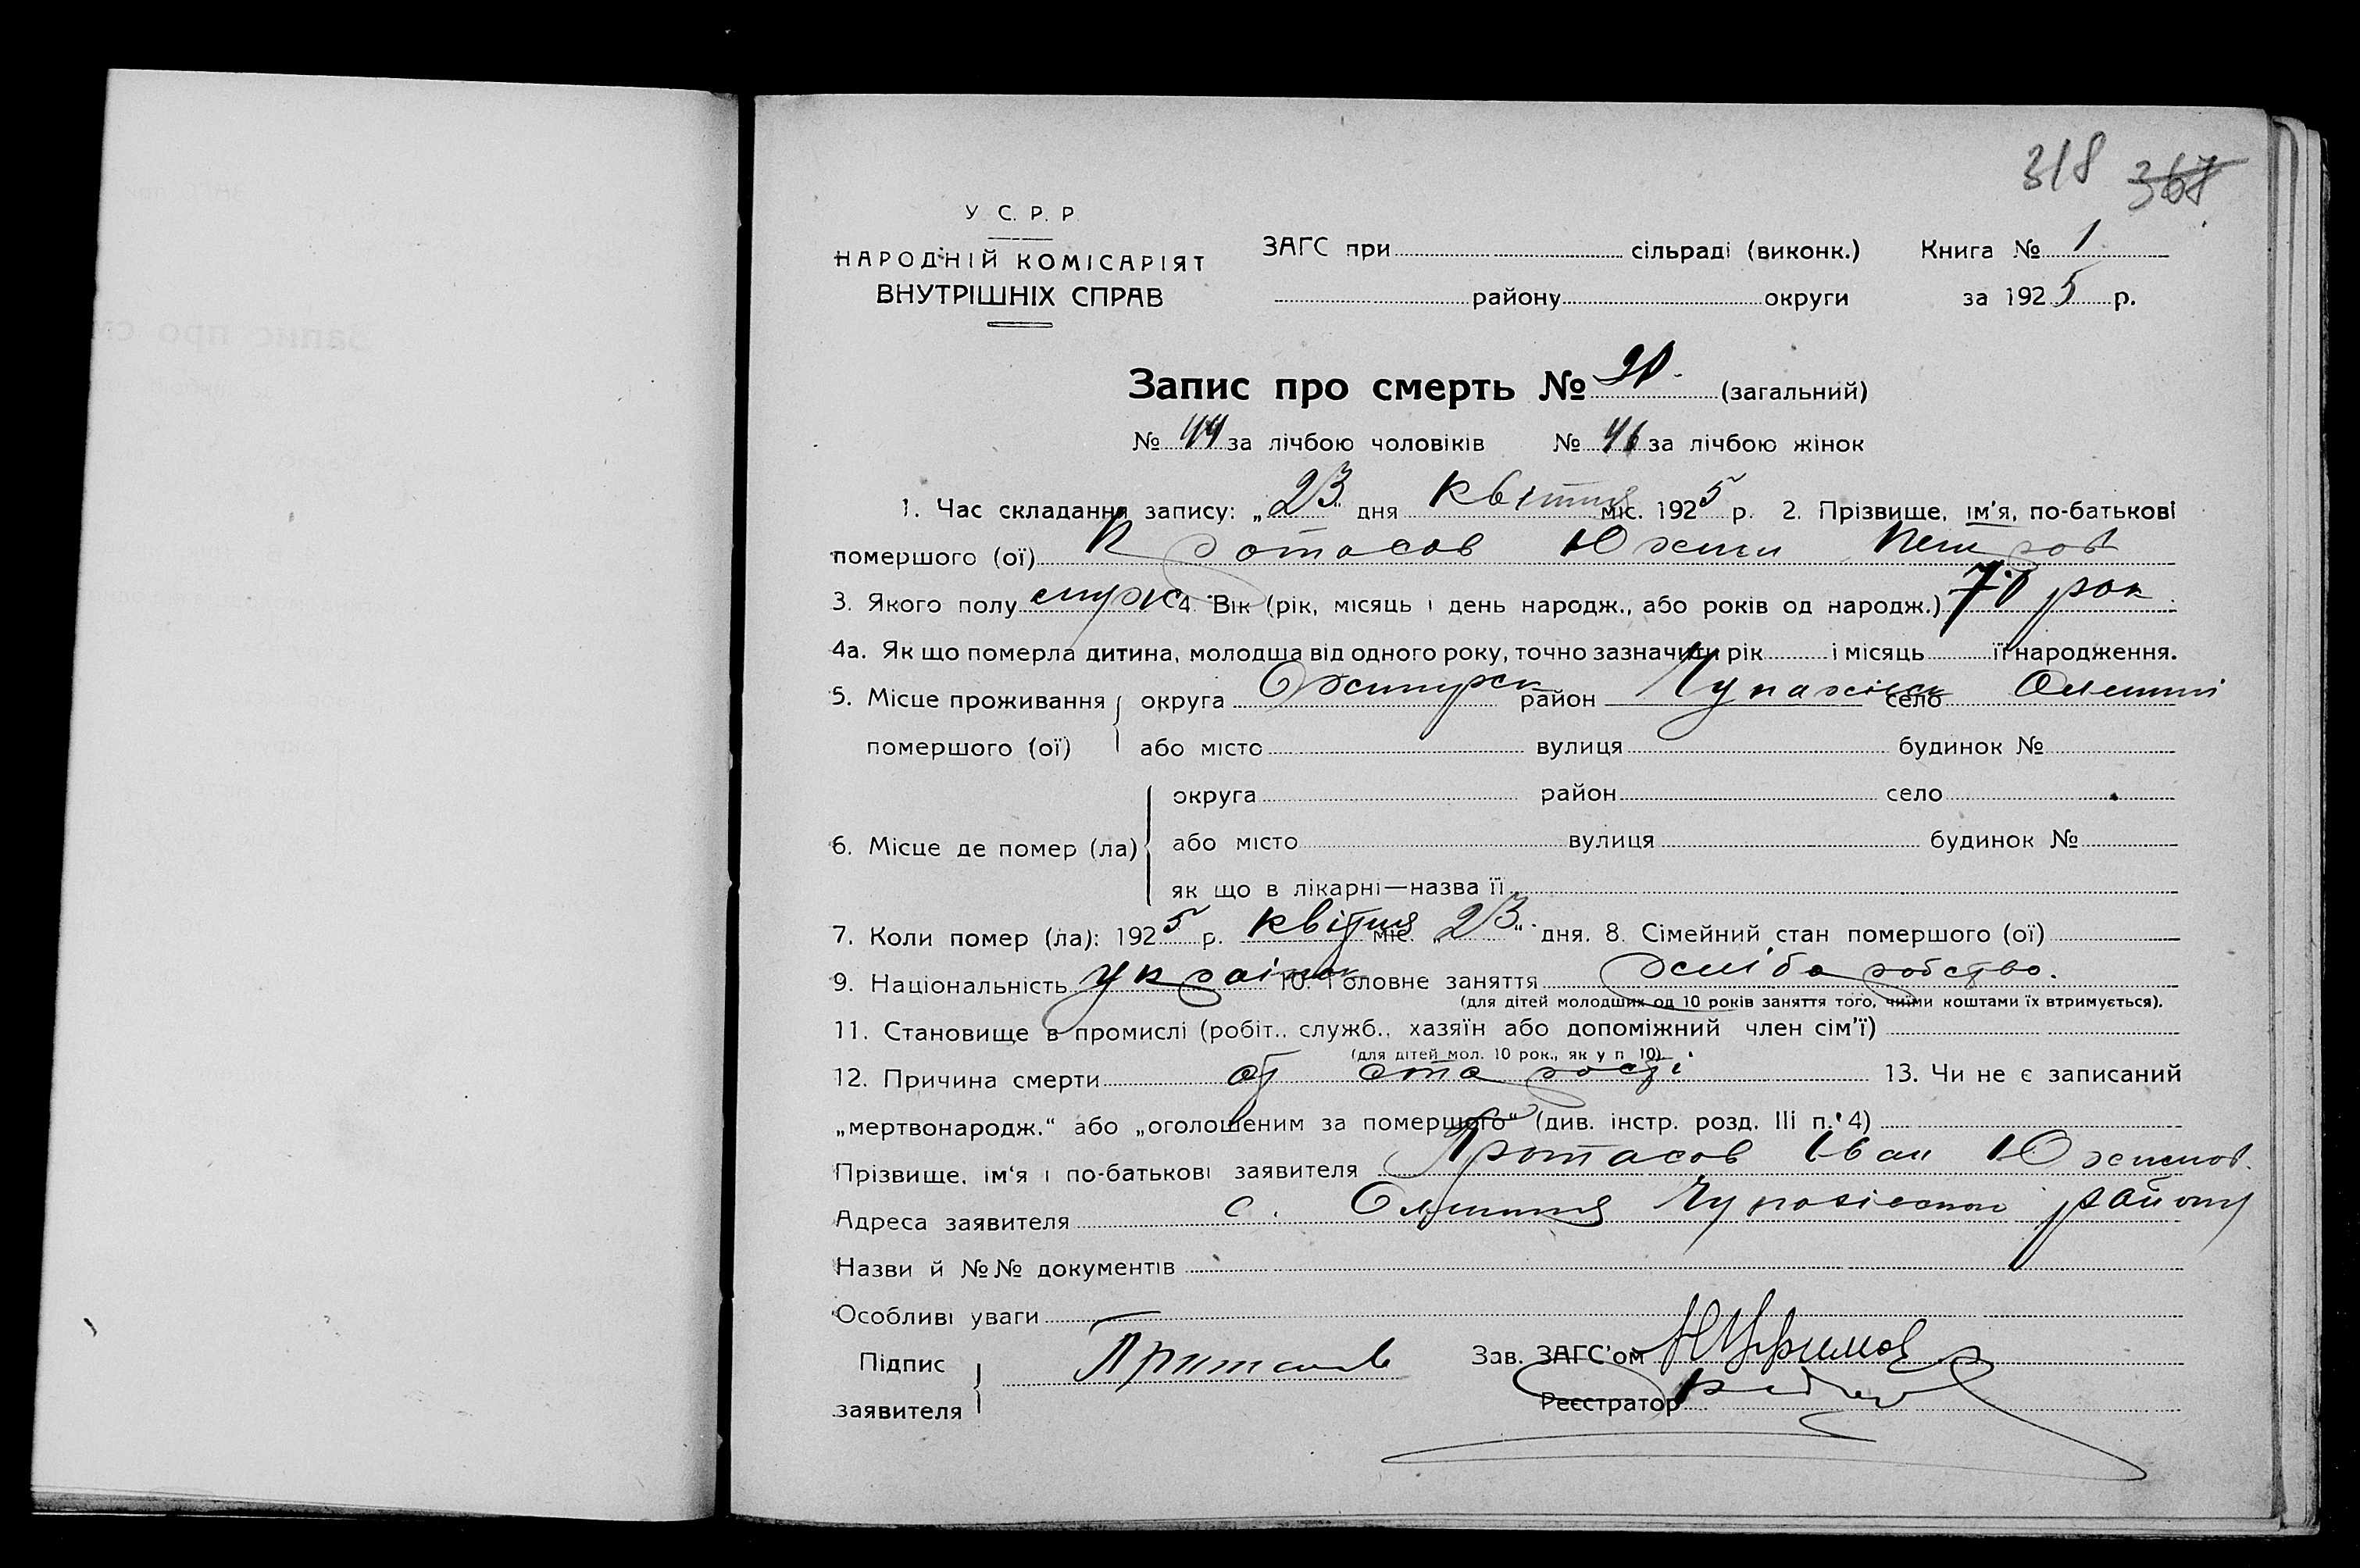 318 368
У. С. Р. Р.
НАРОДНІЙ КОМІСАРІЯТ
ВНУТРІШНІХ СПРАВ
ЗАГС при сільраді (виконк.) Книга № 1
району округи за 1925 р.
Запис про смерть № (загальний)
№ 44 за лічбою чоловіків № 46 за лічбою жінок
1. Час складання запису: „23" дня квітня міс. 1925 р. 2. Прізвище, ім'я, по-батькові
помершого (ої) Протасов Юхим Петров
3. Якого полу 4. Вік (рік, місяць і день народж., або років од народж.) 70 рок
4а. Як що померла дитина, молодша від одного року, точно зазначити рік і місяць її народження.
5. Місце проживання округа Охтирськ район Чупахівськ село Олешні
помершого (ої) або місто вулиця будинок №
округа район село
6. Місце де помер (ла) або місто вулиця будинок №
як що в лікарні—назва її
7. Коли помер (ла): 1925 р. квітня міс. „23" дня. 8. Сімейний стан помершого (ої)
9. Національність українець 10. Головне заняття хліборобство.
(для дітей молодших од 10 років заняття того, чиїми коштами їх втримується).
11. Становище в промислі (робіт., служб., хазяїн або допоміжний член сім'ї)
(для дітей мол. 10 рок., як у п. 10)
12. Причина смерти от старості 13. Чи не є записаний
„мертвонародж." або „оголошеним за помершого" (див. інстр. розд. III п. 4)
Прізвище, ім'я і по-батькові заявителя Протасов Іван Юхимов.
Адреса заявителя с. Олешня Чупахівськ району
Назви й №№ документів
Особливі уваги
Підпис Протасов Зав. ЗАГС'ом
заявителя Реєстратор